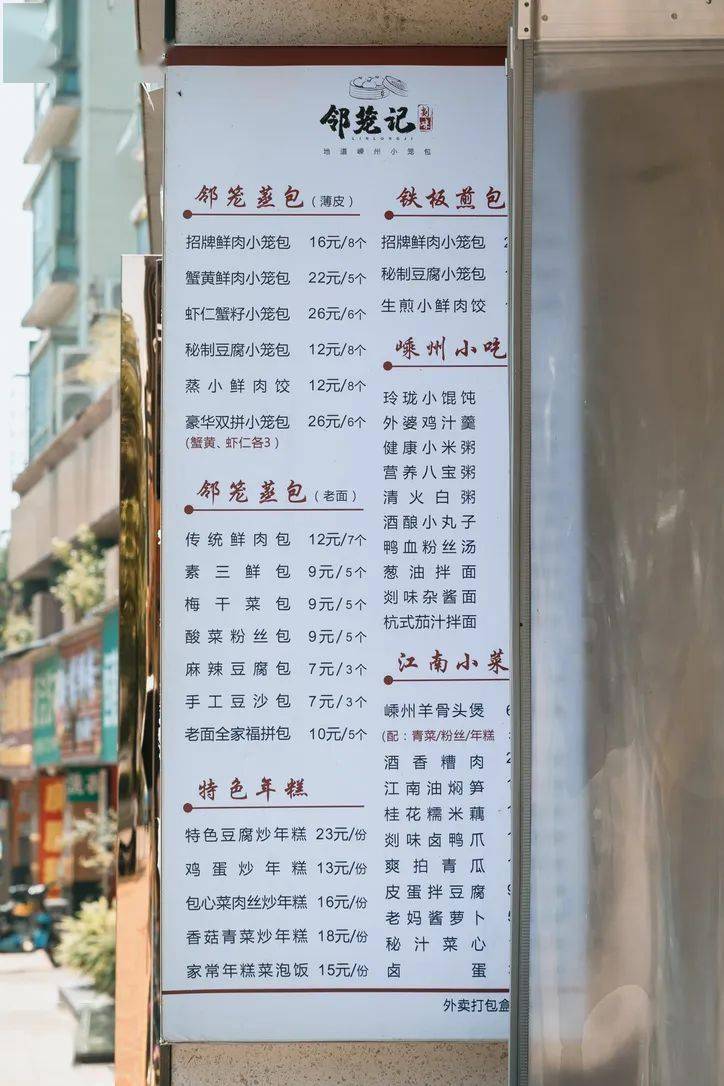 邻笼记
剡味
LINLONGJI
地道嵊州小笼包
邻笼蒸包（薄皮）
招牌鲜肉小笼包 16元/8个
蟹黄鲜肉小笼包 22元/5个
虾仁蟹籽小笼包 26元/6个
秘制豆腐小笼包 12元/8个
蒸小鲜肉饺 12元/8个
豪华双拼小笼包 26元/6个
(蟹黄、虾仁各3）
邻笼蒸包（老面）
传统鲜肉包 12元/7个
素三鲜包 9元/5个
梅干菜包 9元/5个
酸菜粉丝包 9元/5个
麻辣豆腐包 7元/3个
手工豆沙包 7元/3个
老面全家福拼包 10元/5个
特色年糕
特色豆腐炒年糕 23元/份
鸡蛋炒年糕 13元/份
包心菜肉丝炒年糕 16元/份
香菇青菜炒年糕 18元/份
家常年糕菜泡饭 15元/份
铁板煎包
招牌鲜肉小笼包
秘制豆腐小笼包
生煎小鲜肉饺
嵊州小吃
玲珑小馄饨
外婆鸡汁羹
健康小米粥
营养八宝粥
清火白粥
酒酿小丸子
鸭血粉丝汤
葱油拌面
剡味杂酱面
杭式茄汁拌面
江南小菜
嵊州羊骨头煲
(配：青菜/粉丝/年糕
酒香糟肉
江南油焖笋
桂花糯米藕
剡味卤鸭爪
爽拍青瓜
皮蛋拌豆腐
老妈酱萝卜
秘汁菜心
卤蛋
外卖打包盒